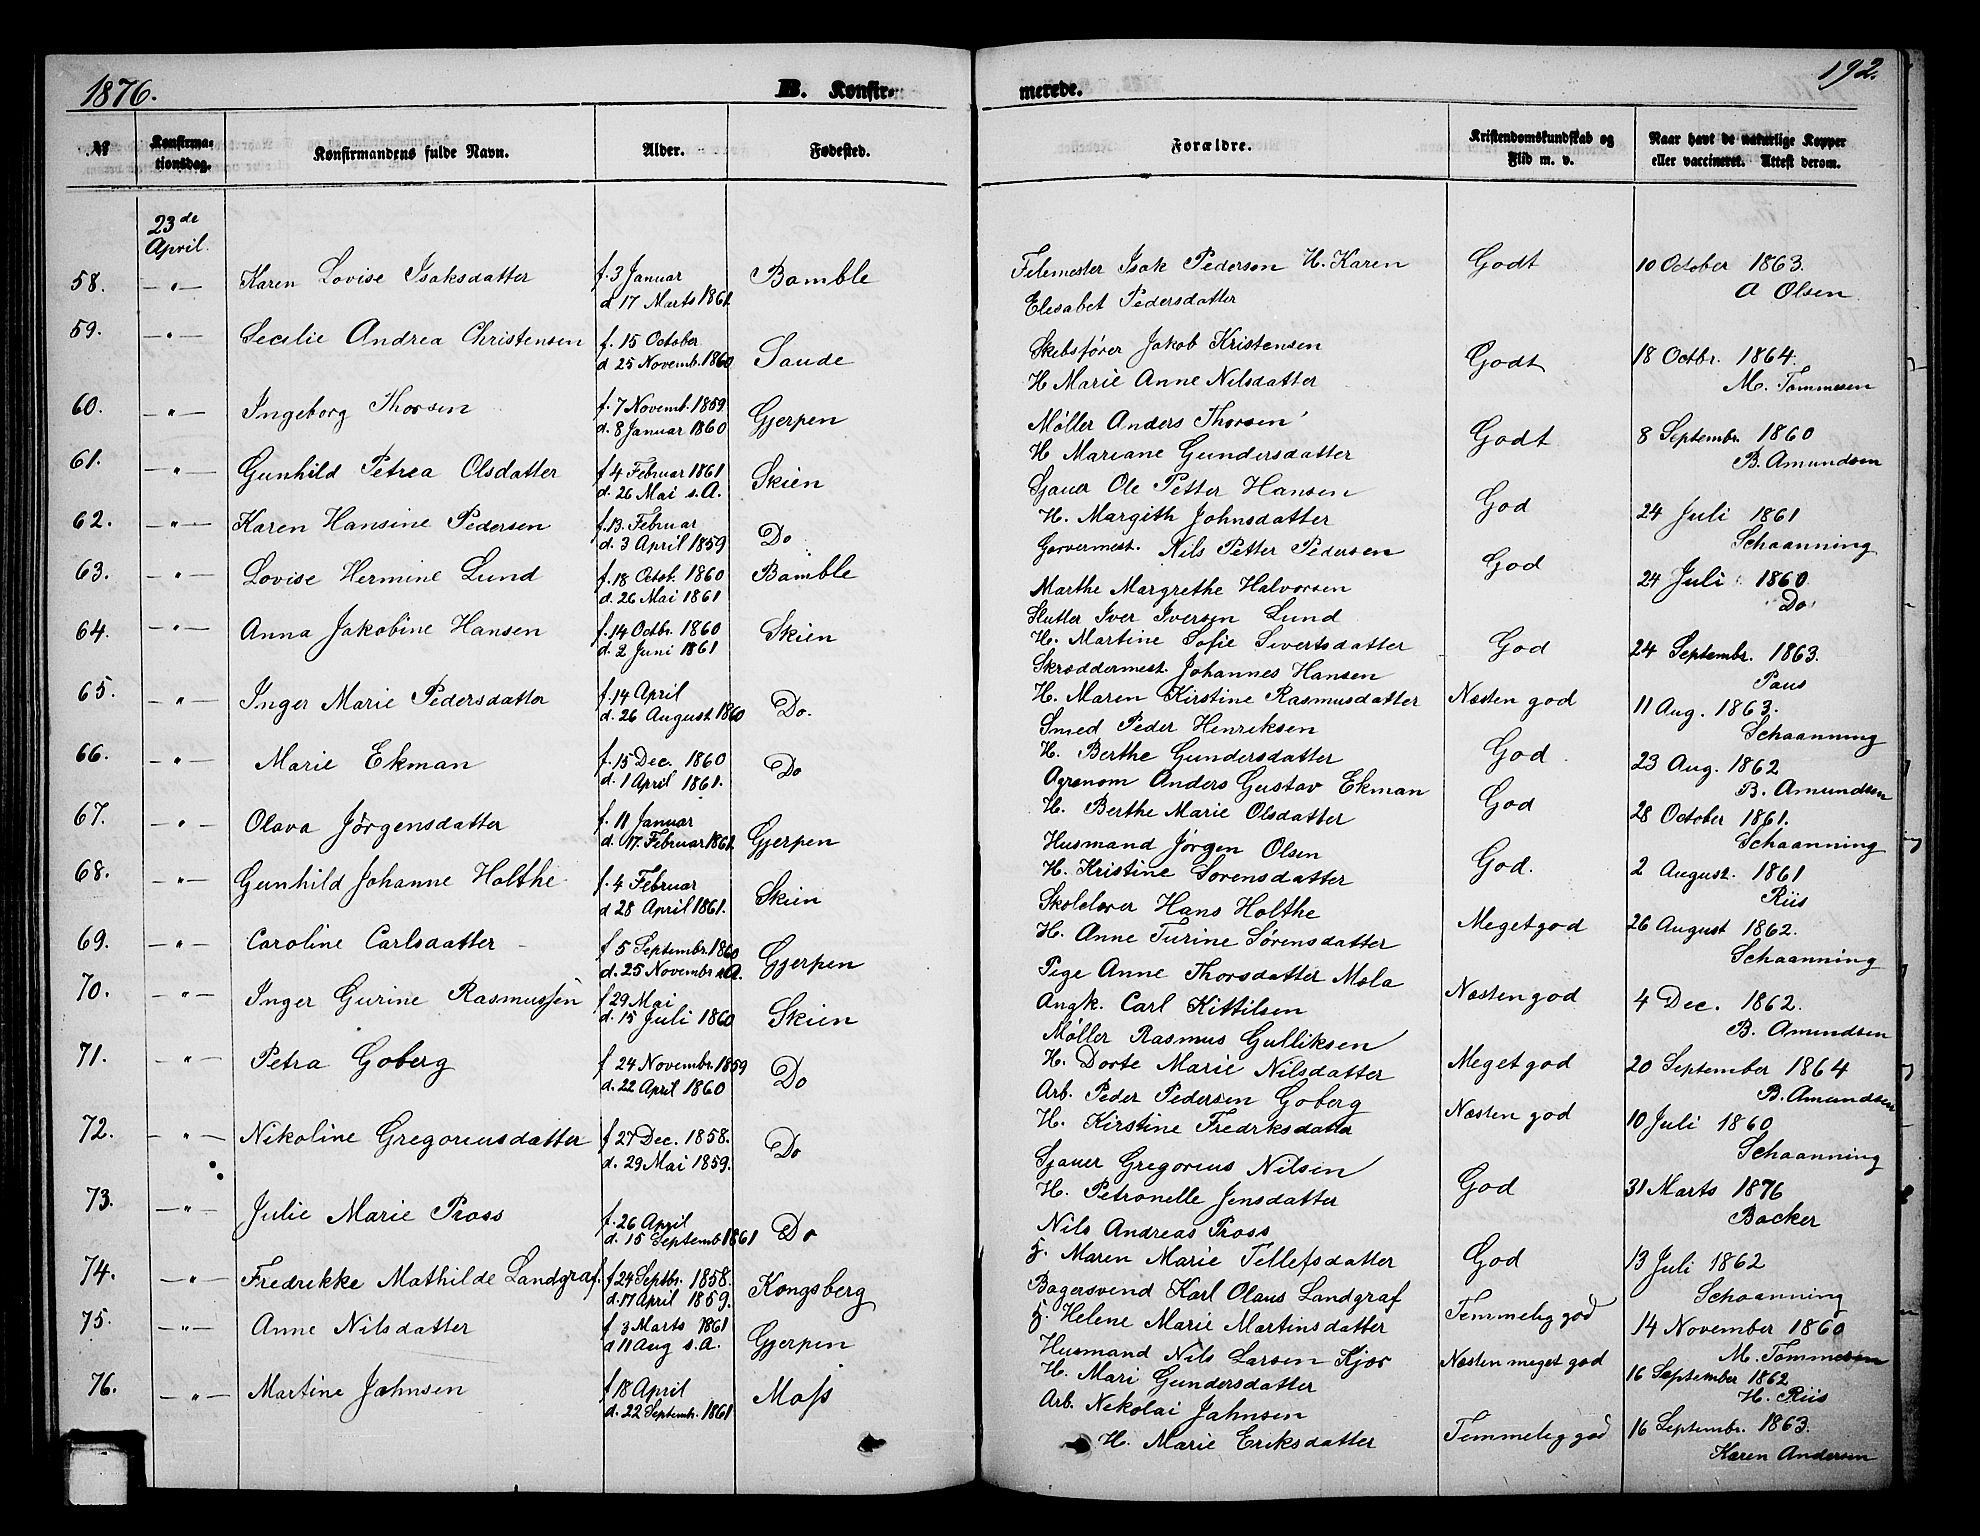 1876.
B. Konfir-
merede.
192.
№
Konfirma-
tionsdag.
Konfirmandens fulde Navn.
Alder.
Fødested.
Forældre.
Kristendomskundskab og
Flid m. v.
Naar havt de naturlige Kopper
eller vaccineret. Attest derom.
23de
April.
58. —"— Karen Lovise Isaksdatter f. 3 Januar
d 17 Marts 1861. Bamble
Filemester Isak Pedersen H. Karen
Elesabet Pedersdatter
Godt
10 October 1863.
A Olsen
59. —"— Secilie Andrea Christensen f. 15 October
d 25 Novemb. 1860 Saude
Skibsfører Jakob Kristensen
H Marie Anne Nilsdatter
Godt
18 Octbr. 1864.
M. Tommesen
60. —"— Ingeborg Thorsen f. 7 Novemb. 1859
d. 8 Januar 1860 Gjerpen
Møller Anders Thorsen
H Mariane Gundersdatter
Godt
8 Septembr 1860
B. Amundsen
61. —"— Gunhild Petrea Olsdatter f 4 Februar 1861
d. 26 Mai s. A. Skien
Sjauer Ole Petter Hansen
H. Margith Johnsdatter
God
24 Juli 1861
Schaanning
62. —"— Karen Hansine Pedersen f. 13. Februar
d. 3 April 1859 Do
Garvermest. Nils Petter Pedersen
Marthe Margrethe Halvorsen
God
24 Juli 1860
Do
63. —"— Lovise Hermine Lund f. 18 Octob. 1860
d. 26 Mai 1861 Bamble
Slutter Iver Iversen Lund
H. Martine Sofie Sivertsdatter
God
24 Septembr. 1863.
Paus
64. —"— Anna Jakobine Hansen f. 14 Octbr. 1860
d. 2 Juni 1861 Skien
Skræddermest. Johannes Hansen
H. Maren Kirstine Rasmusdatter
Næsten god
11 Aug. 1863.
Schaanning
65. —"— Inger Marie Pedersdatter f. 14 April
d. 26 August 1860 Do.
Smed Peder Henriksen
H. Berthe Gundersdatter
God
23 Aug. 1862
B. Amundsen
66. —"— Marie Ekman f. 15 Dec. 1860
d. 1 April 1861. Do
Agronom Anders Gustav Ekman
H. Berthe Marie Olsdatter
God
28 October 1861.
Schaanning
67. —"— Olava Jørgensdatter f. 11 Januar
d. 17. Februar 1861. Gjerpen
Husmand Jørgen Olsen
H. Kristine Sorensdatter
God.
2 August. 1861
Riis
68. —"— Gunhild Johanne Holthe f. 4 Februar
d 28 April 1861. Skien
Skolelærer Hans Holthe
H. Anne Turine Sørensdatter
Meget god
26 August 1862.
Schaanning
69. —"— Caroline Carlsdatter f 5 Septembr. 1860
d. 25 Novembr s. A. Gjerpen
Pige Anne Thorsdatter Mæla
Angk. Carl Kittilsen
Næsten god
4 Dec. 1862.
B. Amundsen
70. —"— Inger Gurine Rasmussen f 29 Mai
d. 15 Juli 1860 Skien
Møller Rasmus Gulliksen
H. Dorte Marie Nilsdatter
Meget god
20 September 1864
B. Amundsen
71. —"— Petra Goberg f 24 Novembr. 1859
d. 22 April 1860 Do
Arb. Peder Pedersen Goberg
H. Kirstine Fredriksdatter
Næsten god
10 Juli 1860
Schaanning
72. —"— Nikoline Gregoriusdatter f 27 Dec. 1858.
d. 29 Mai 1859. Do
Sjauer Gregorius Nilsen
H. Petronelle Jensdatter
God
31 Marts 1876
Backer
73. —"— Julie Marie Pross f. 26 April
d. 15 Septemb 1861 Do
Nils Andreas Pross
H. Maren Marie Tellefsdatter
God
13 Juli 1862
Schaanning
74. —"— Fredrikke Mathilde Landgraf. f 24 Septbr. 1858.
d. 17 April 1859. Kongsberg
Bagersvend Karl Olaus Landgraf
H. Helene Marie Martinsdatter
Temmelig god
14 November 1860
M. Tommesen
75. —"— Anne Nilsdatter f 3 Marts 1861
d 11 Aug s. A. Gjerpen
Husmand Nils Larsen Kjær
H. Mari Gundersdatter
Næsten meget god
16 September 1862
H. Riis
76. —"— Martine Jahnsen f 18 April
d. 22 Septembr. 1861 Moss
Arb. Nekolai Jahnsen
H. Marie Eriksdatter
Temmelig god
16 Septembr. 1863.
Karen Andersen